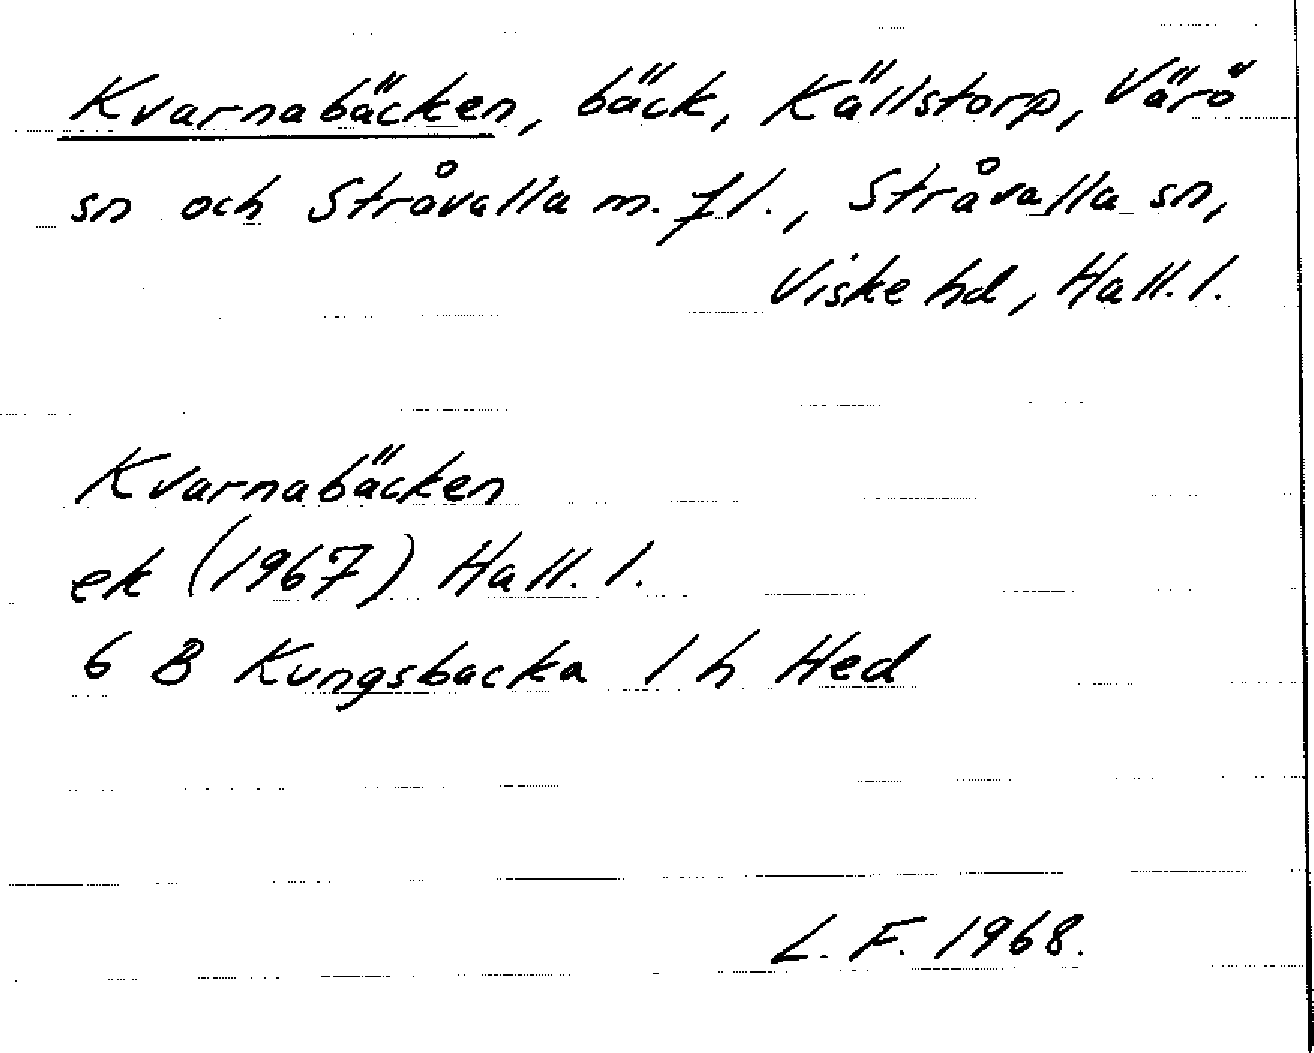 Kvarnabäcken, bäck, Källstorp, Värö
sn och Stråvalla m. fl., Stråvalla sn,
Viske hd, Hall. l.
Kvarnabäcken
ek (1967) Hall. l.
6 B Kungsbacka 1 h Hed
L. F. 1968.